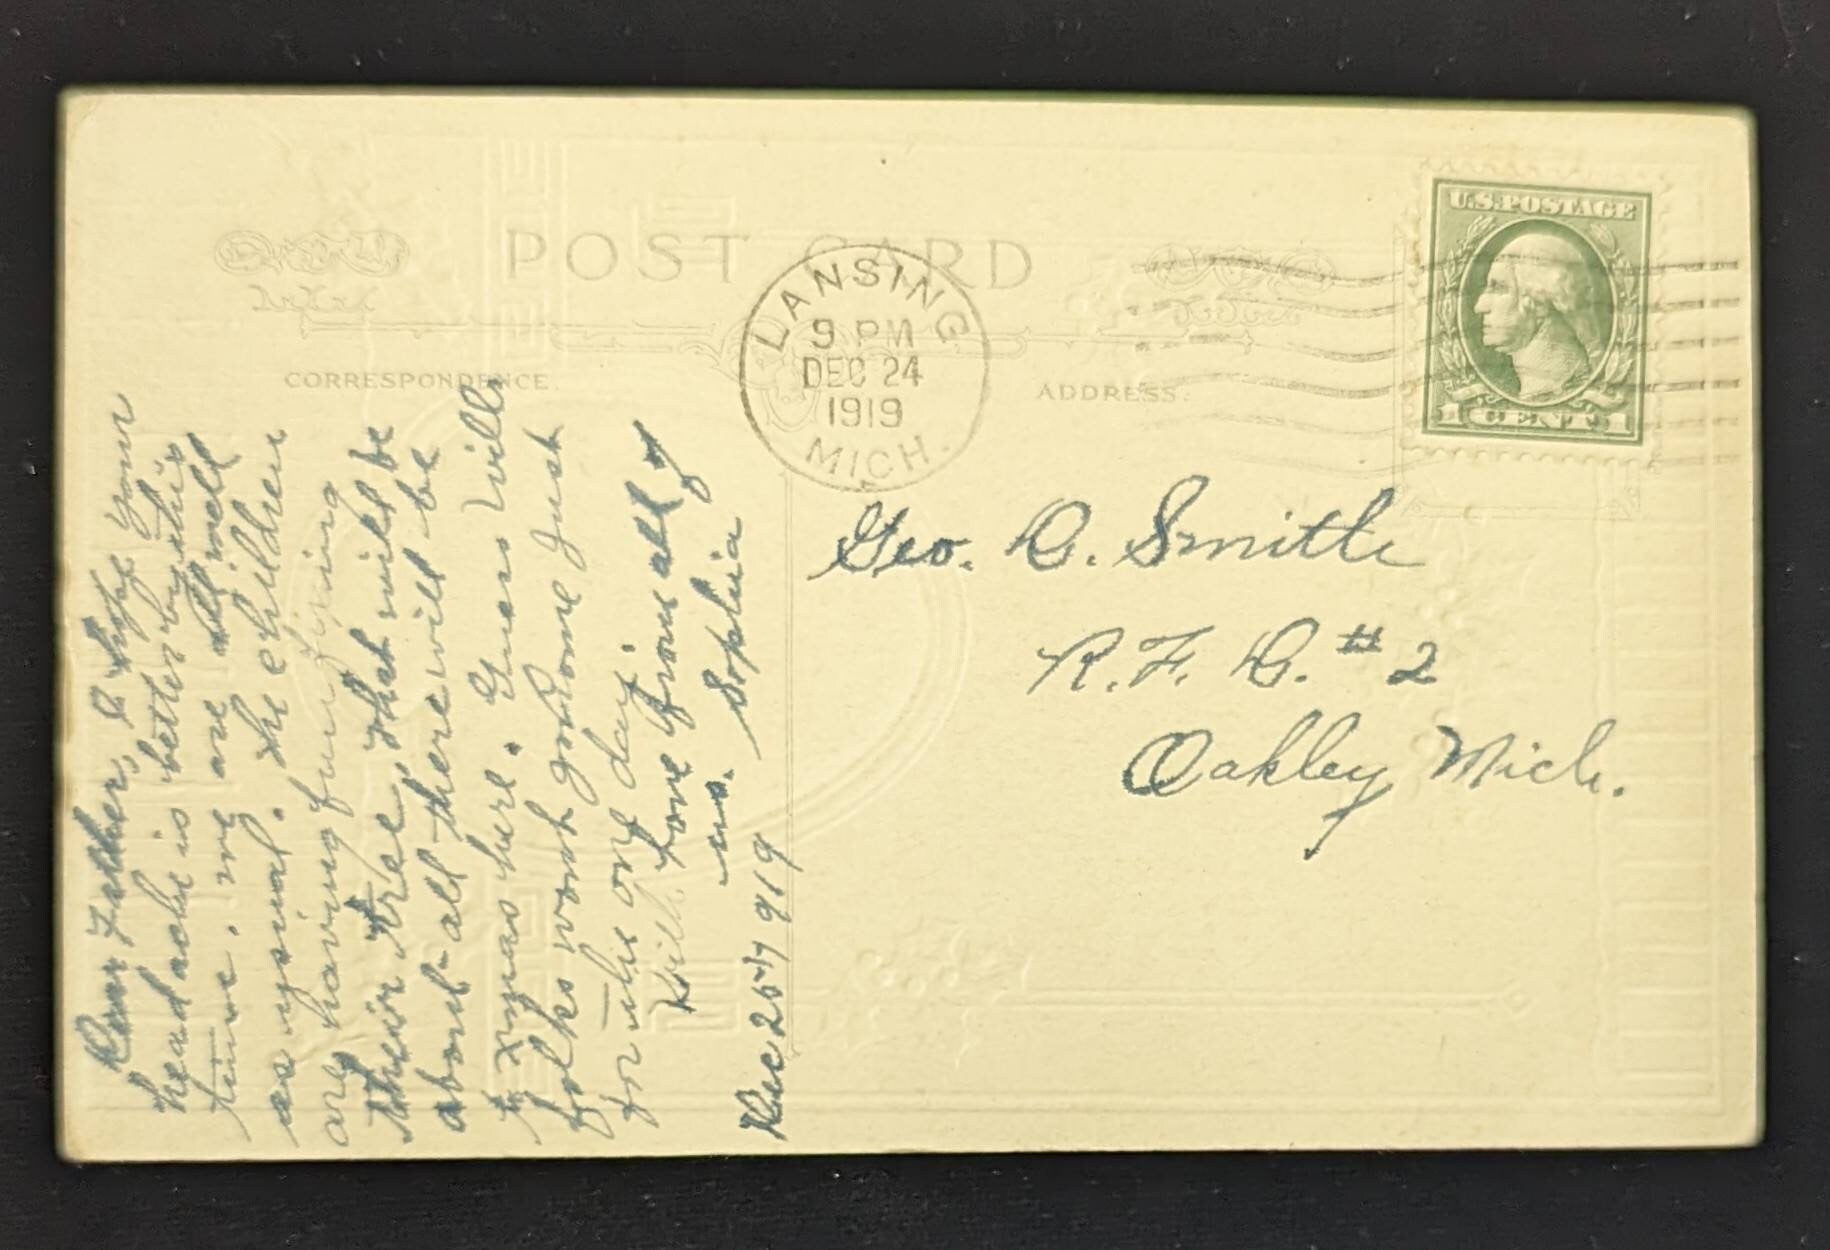 POST CARD
CORRESPONDENCE.
ADDRESS.
U.S. POSTAGE
1 CENT 1
LANSING
9 PM
DEC 24
1919
MICH.
Geo. D. Smith
R. F. D. #2
Oakley Mich.
Dear Father, I hope your
head ache is better by this
time. we are all well
as usual. The children
are having fun fixing
their tree, that will be
about all there will be
to xmas here. Guess Wills
folks wont go home just
for the one day.
With Love from all of
us. Sophia
Dec 25 1919